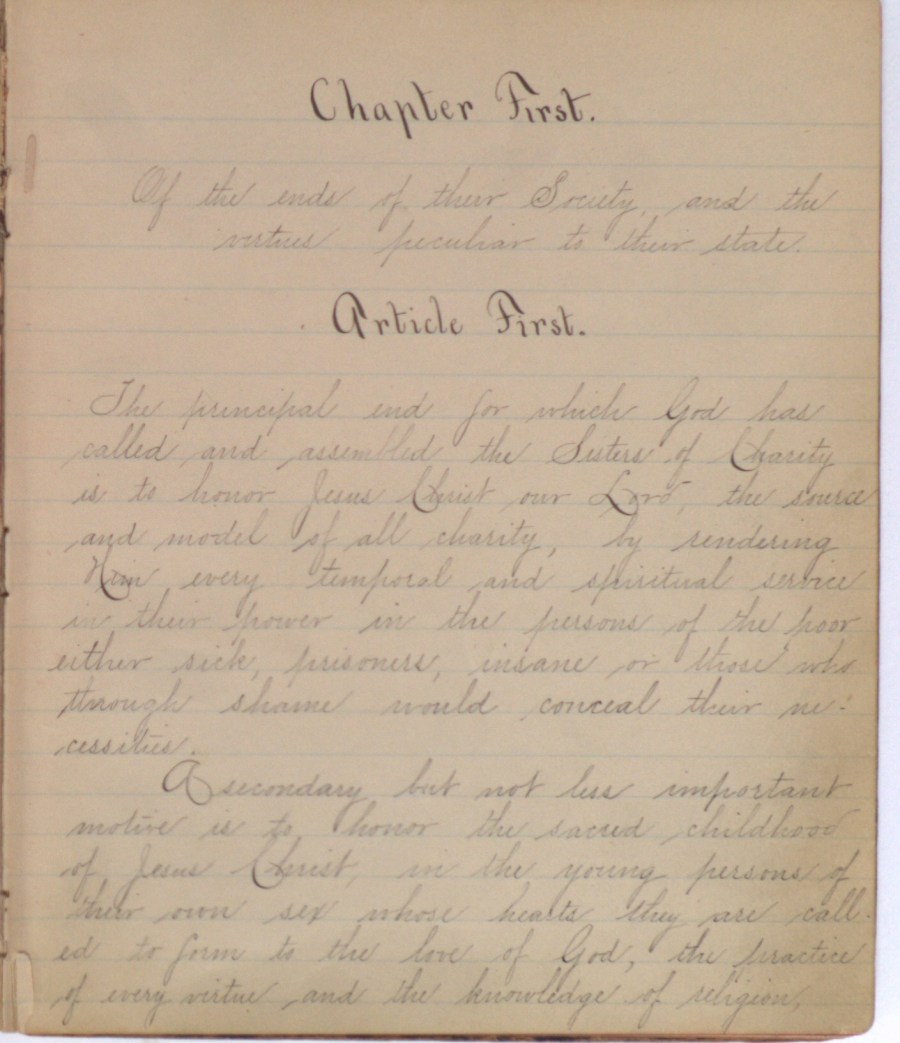 Chapter First.
Of the ends of their Society, and the
virtues peculiar to their state.
Article First.
The principal end for which God has
called and assembled the Sisters of Charity
is to honor Jesus Christ our Lord, the source
and model of all charity, by rendering
Him every temporal and spiritual service
in their power in the persons of the poor
either sick, prisoners, insane or those who
through shame would conceal their ne-
cessities.
A secondary but not less important
motive is to honor the sacred childhood
of Jesus Christ, in the young persons of
their own sex whose hearts they are call-
ed to form to the love of God, the practice
of every virtue and the knowledge of religion,